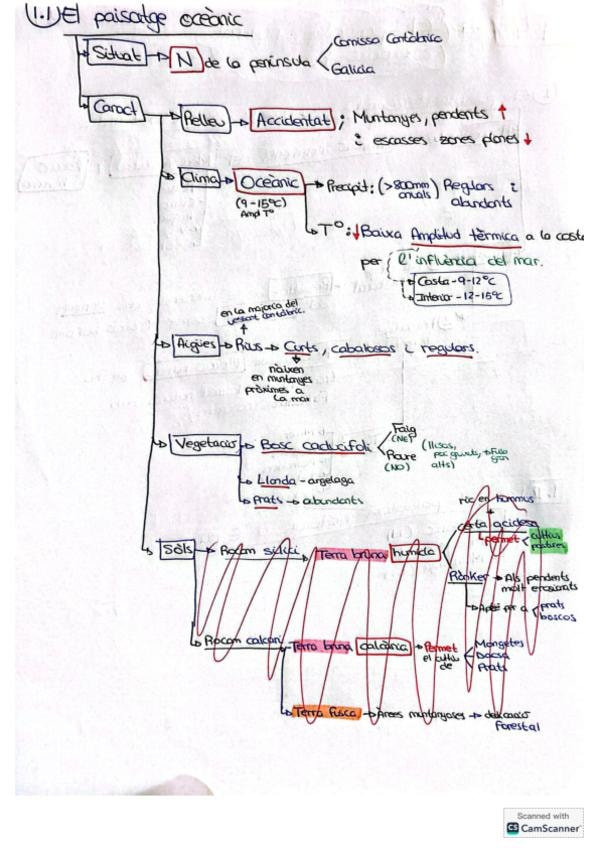 1.1) El paisatge oceànic
Situat → N de la península < Cornissa Cantàbrica
Galícia
Caract → Relleu → Accidentat ; Muntanyes, pendents ↑
i escasses zones planes ↓
Clima → Oceànic → Precipit: (>800mm anuals) Regulars i abundants
(9-15ºC)
Amp Tº
Tº: ↓ Baixa Amplitud tèrmica a la costa
per l'influència del mar.
Costa - 9-12ºC
Interior - 12-15ºC
en la majoria del
vessant cantàbric.
Aigües → Rius → Curts, cabalosos i regulars.
naixen
en muntanyes
pròximes a
la mar
Vegetació → Bosc caducifoli < Faig
(NE)
Roure
(NO)
(llisos,
alts)
Llanda - argelaga
Prats → abundants
ric en hummus
certa acidesa
permet < cultius
pastures
Sòls → Rocam silici → Terra bruna humida
Rànker → Als pendents
molt erosionats
prats
boscos
Rocam calcari → Terra bruna calcària → Permet
el cultiu
de
Mongetes
Dacsa
Prats
Terra fusca → Àrees muntanyoses →
Forestal
Scanned with
CS CamScanner